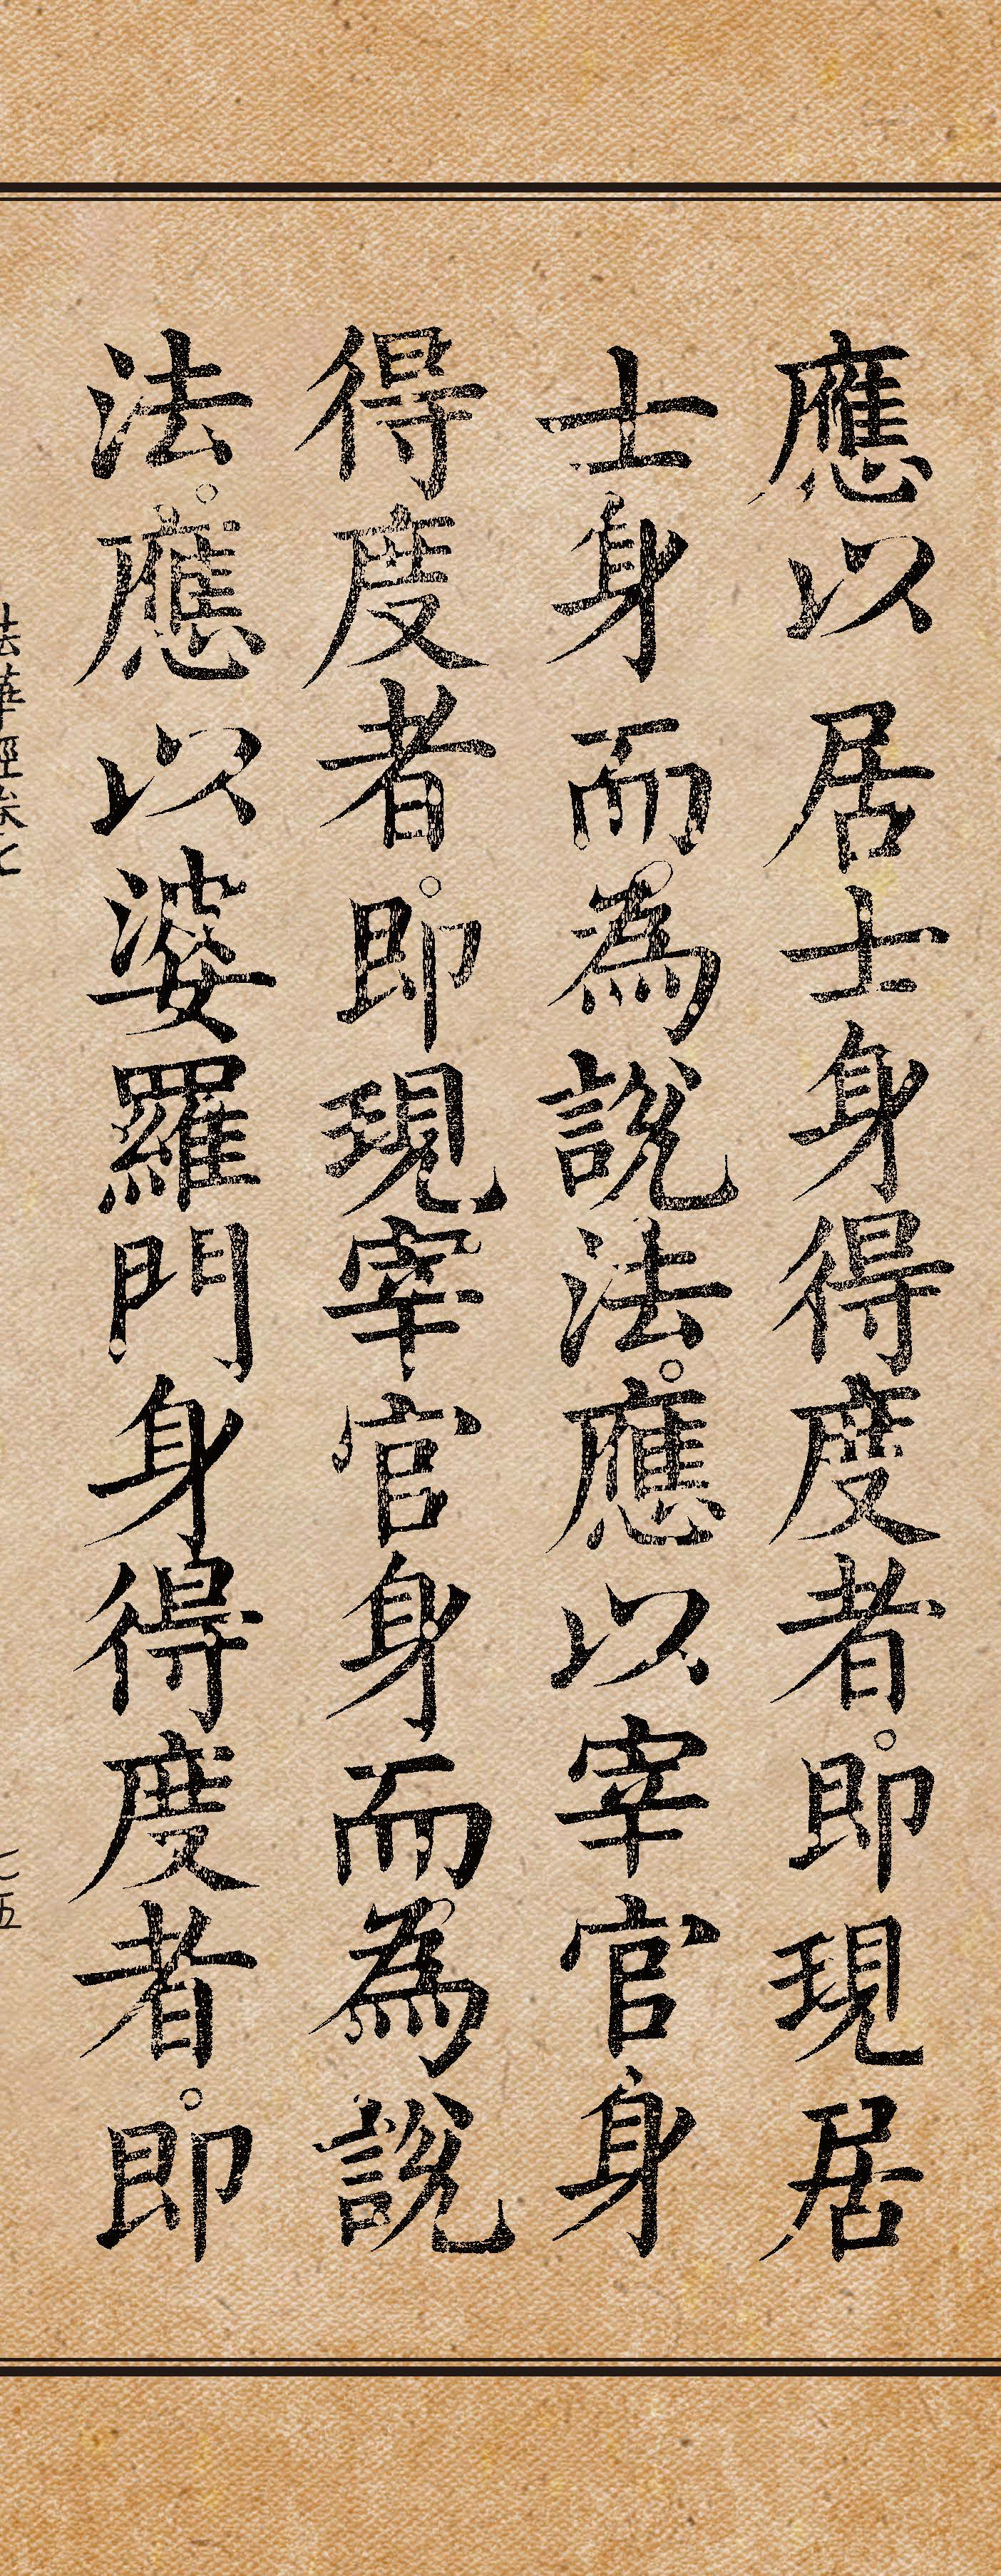 應以居士身得度者。即現居
士身而為說法。應以宰官身
得度者。即現宰官身而為說
法。應以婆羅門身得度者。即
法華經卷七
七五